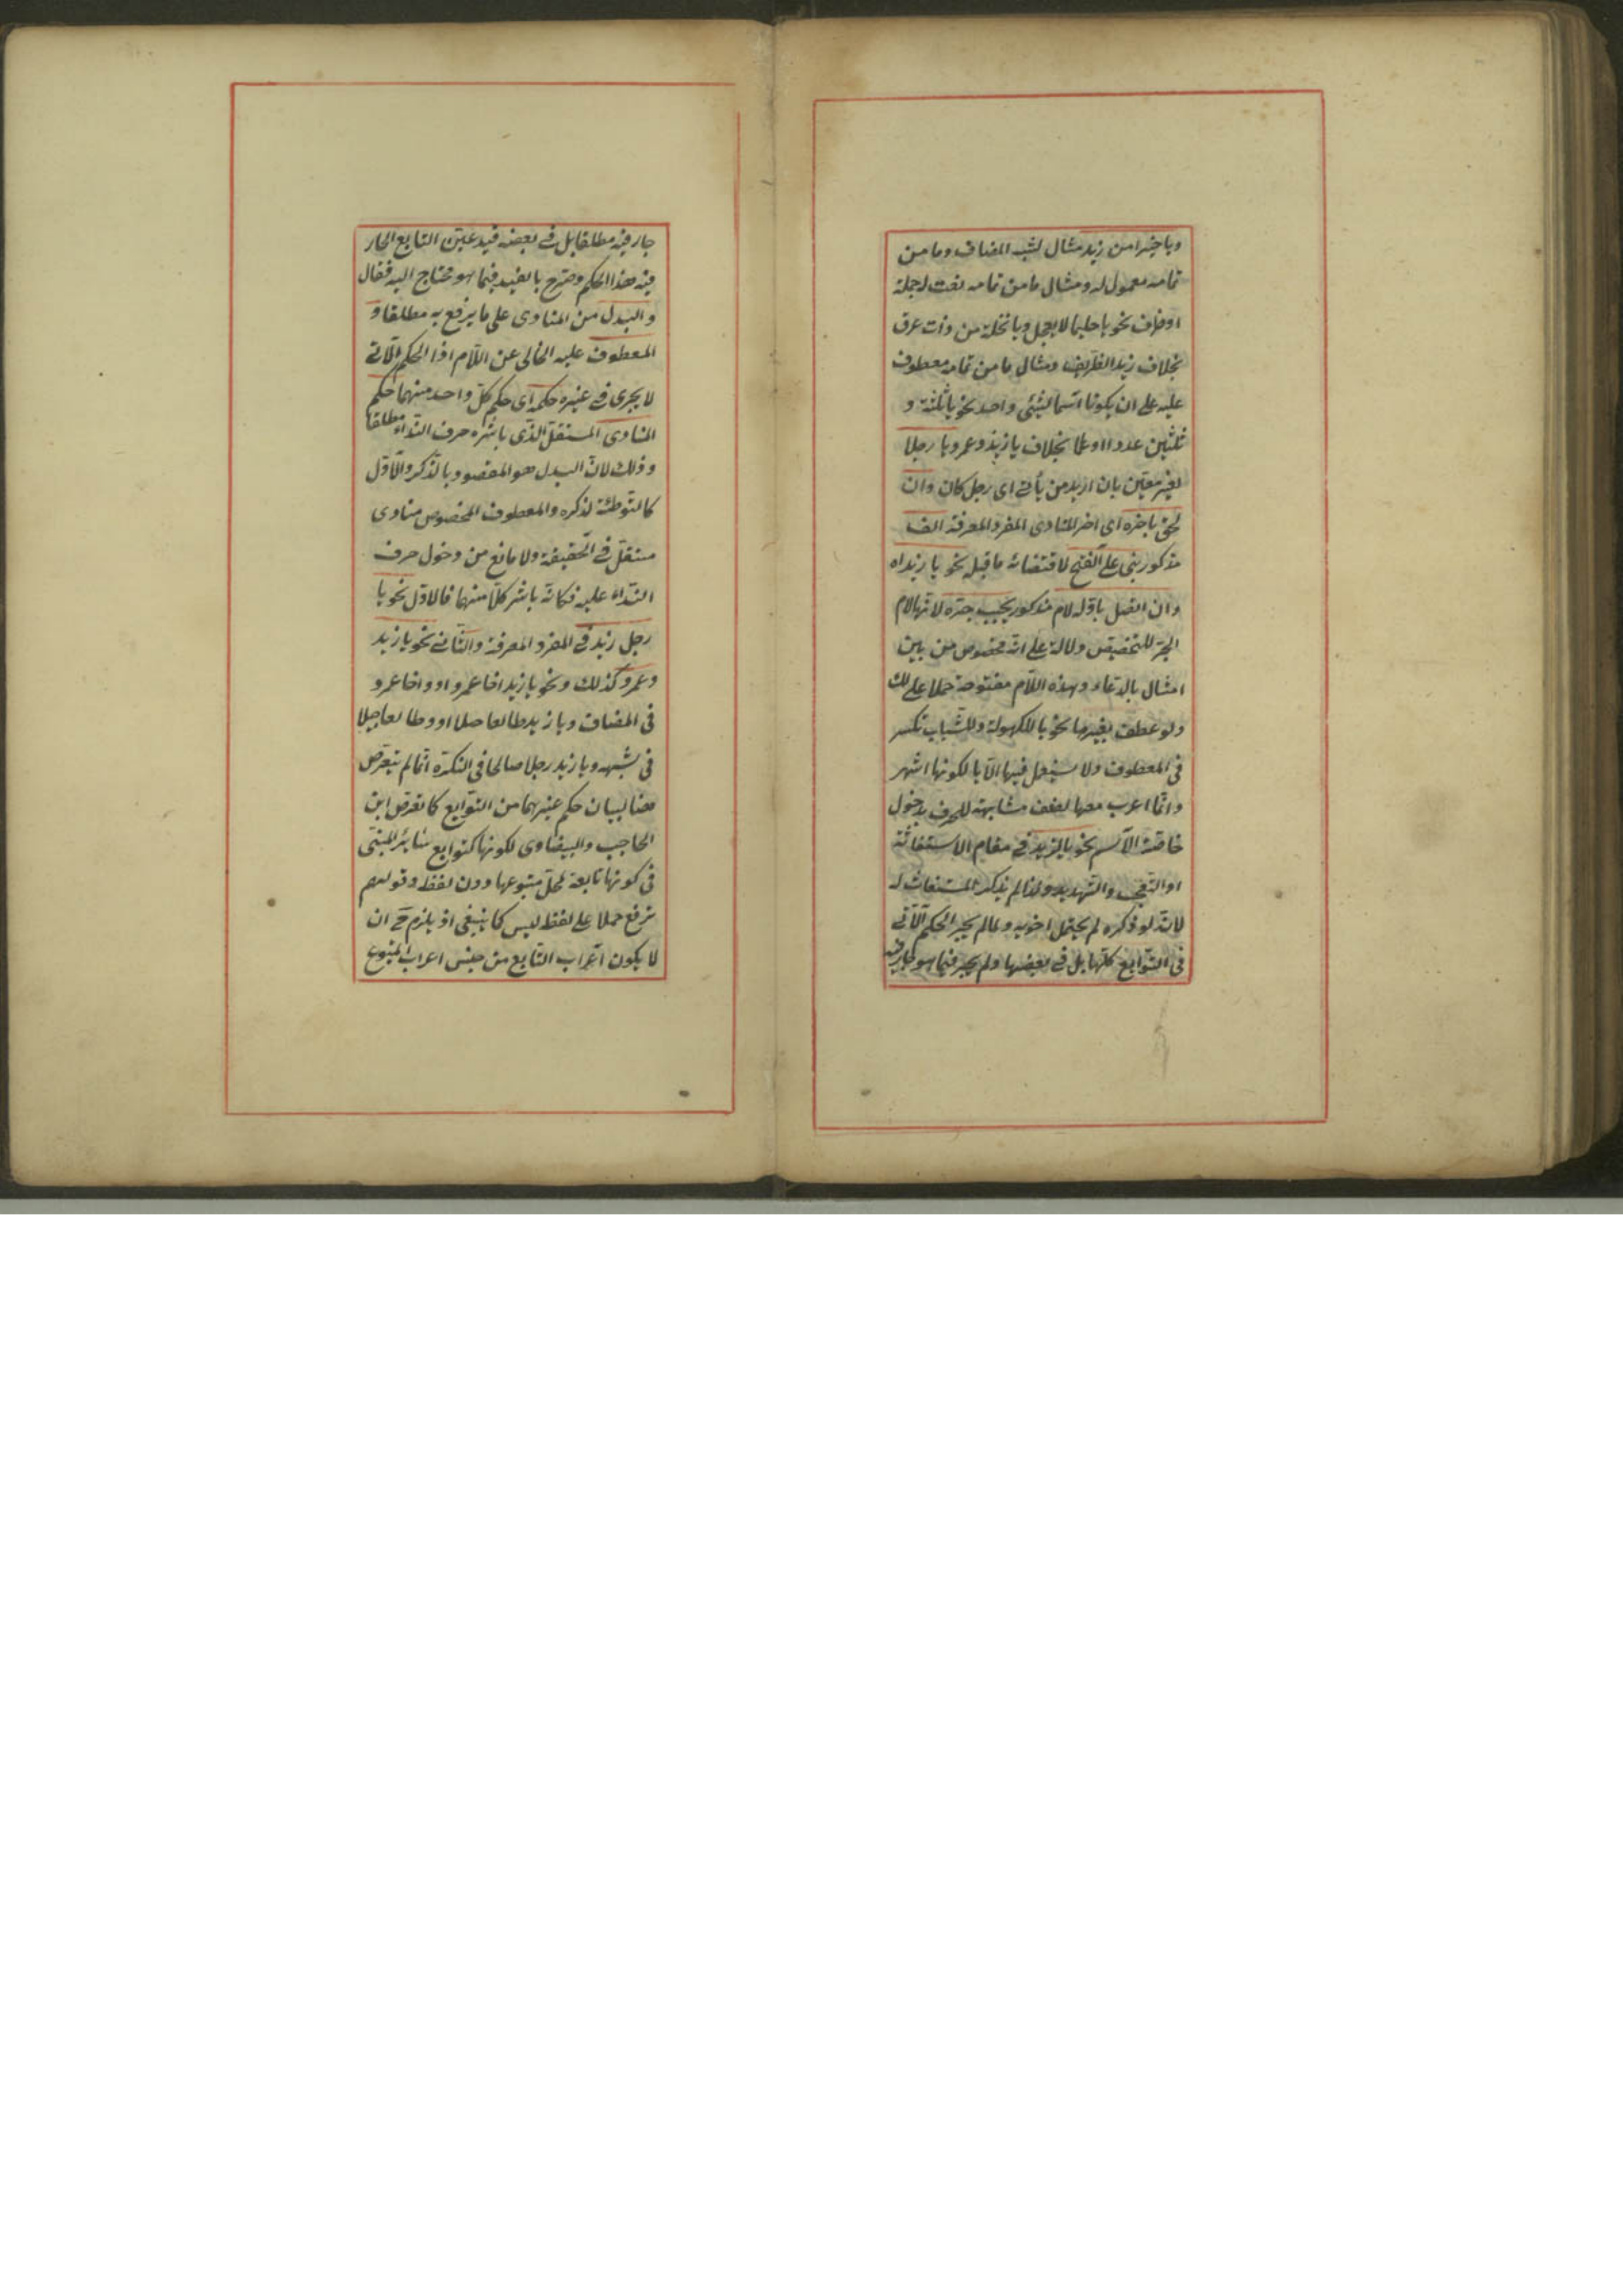 ويا خيرا من زيد مثال لشبه المضاف وما من
تمامه معمول له ومثال ما من تمامه نعت له جملة
او ظرف نحو يا حليما لا يعجل ويا نخلة من ذات عرق
بخلاف زيد الظريف ومثال ما من تمامه معطوف
عليه على ان يكونا اسما لشيئ واحد نحو يا ثلثة و
ثلثين عددا او علما بخلاف يا زيد وعمرو يا رجلا
لغير معين بان اريد من يأتي اى رجل كان وان
لحق باخره اى اخر المنادى المفرد المعرفة الف
مذكور بنى على الفتح لاقتضائه ما قبله نحو يا زيداه
وان اتصل باوله لام مذكور يجب جره لانها لام
الجر للتخصيص دلالة على انه مخصوص من بين
امثال بالدعاء وهذه اللام مفتوحة حملا على لك
ولو عطف بغيرها نحو يا للكهولة وللشباب تكسر
فى المعطوف ولا يستعمل فيها الا يا لكونها اشهر
وانما اعرب معها لضعف مشابهته للحرف بدخول
خاصة الاسم نحو يا لزيد فى مقام الاستغاثة
او التعجب والتهديد ولذا لم يذكر المستغاث له
لانه لو ذكره لم يحتمل اخويه ولما لم يجر الحكم الآتى
فى التوابع كلها بل فى بعضها ولم يجر فيما هو جار فيه
جار فيه مطلقا بل فى بعضه قيد عين التابع الجار
فيه هذا الحكم وصرح بالقيد فيما هو محتاج اليه فقال
والبدل من المنادى على ما يرفع به مطلقا و
المعطوف عليه الخالى عن اللام اذا الحكم الآتى
لا يجرى فى غيره حكمه اى حكم كل واحد منهما حكم
المنادى المستقل الذى باشره حرف النداء مطلقا
وذلك لان البدل هو المقصود بالذكر والاول
كالتوطئة لذكره والمعطوف المخصوص منادى
مستقل فى الحقيقة ولا مانع من دخول حرف
النداء عليه فكانه باشر كلا منهما فالاول نحو يا
رجل زيد فى المفرد المعرفة والثانى نحو يا زيد
وعمرو كذلك ونحو يا زيد اخا عمرو او واخا عمرو
فى المضاف ويا زيد طالعا جبلا او وطالعا جبلا
فى شبهه ويا زيد رجلا صالحا فى النكرة انما لم يتعرض
هنا لبيان حكم غيرهما من التوابع كما تعرض ابن
الحاجب والبيضاوى لكونها كتوابع سائر المبنى
فى كونها تابعة لمحل متبوعها دون لفظه وقولهم
ترفع حملا على لفظه ليس كما ينبغى اذ يلزم ح ان
لا يكون اعراب التابع من جنس اعراب المتبوع